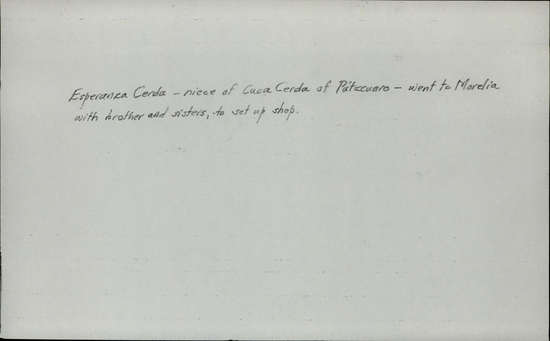 Esperanza Cerda – niece of Cuca Cerda of Pátzcuaro – went to Morelia
with brother and sisters, to set up shop.